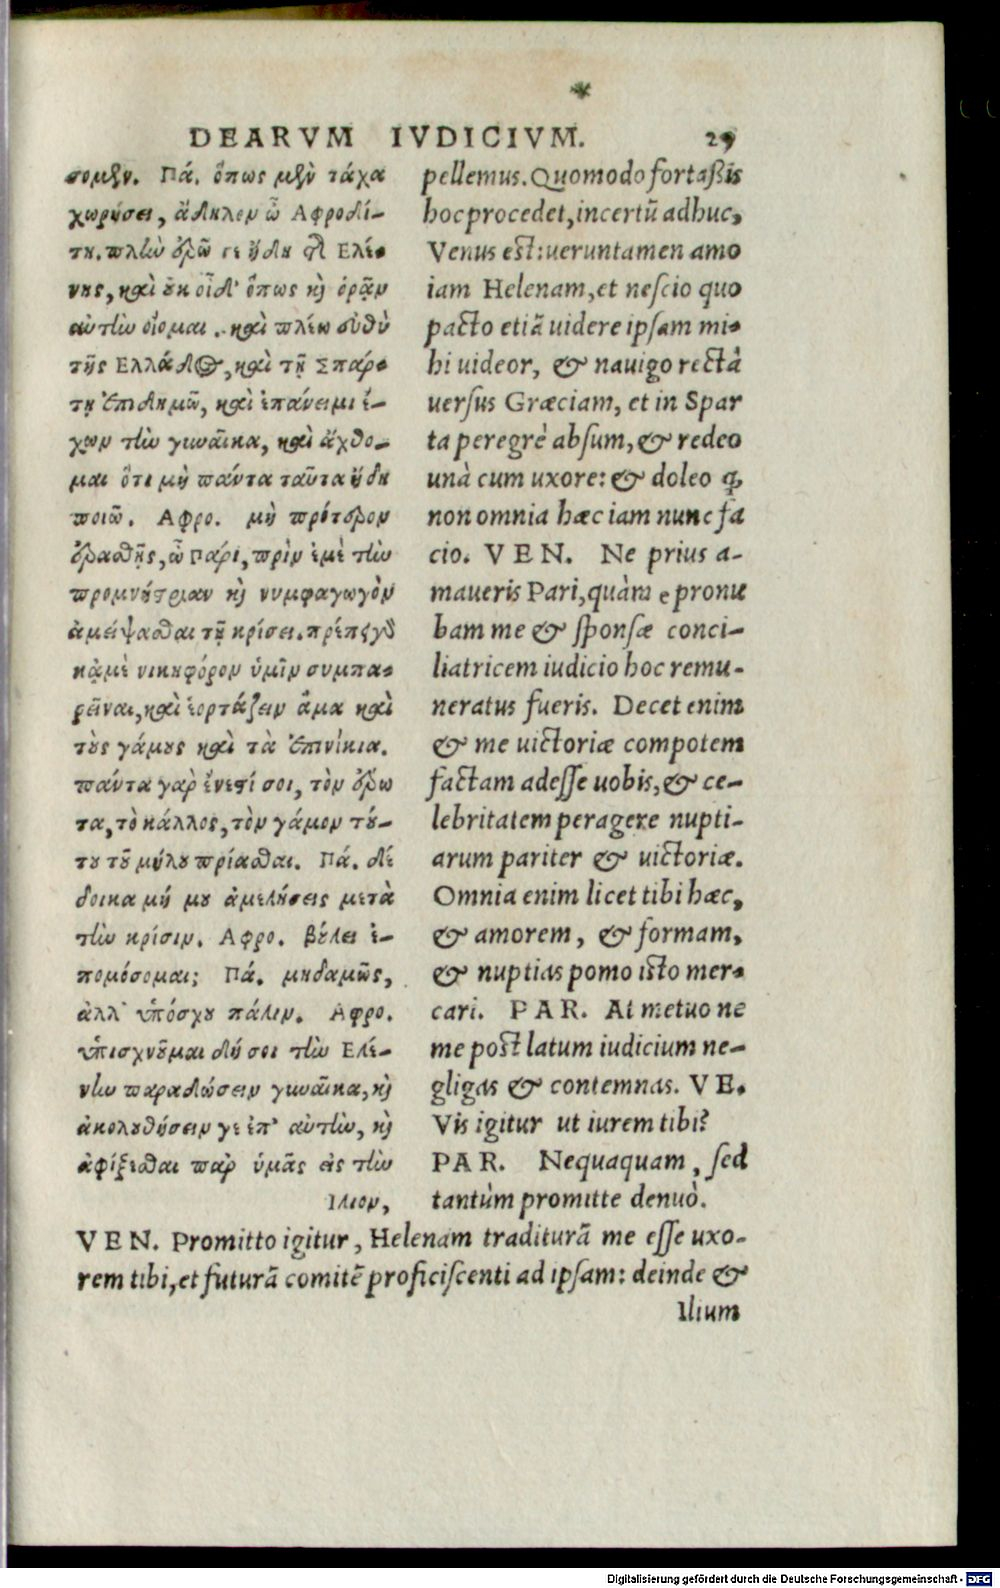 DEARVM IVDICIVM. 29
σομεν. Πά. ὅπως μὲν τάχα
χωρήσει, ἄδηλον ὦ Αφροδί-
τη. πλὴν ἐρῶ γε ἤδη τῆς Ελέ-
νης, καὶ οὐκ οἶδ' ὅπως καὶ ὁρᾷν
αὐτὴν οἴομαι. καὶ πλέω εὐθὺ
τῆς Ελλάδος, καὶ τῇ Σπάρ-
τῃ ἐπιδημῶ, καὶ ἐπάνειμι ἔ-
χων τὴν γυναῖκα, καὶ ἄχθο-
μαι ὅτι μὴ πάντα ταῦτα ἤδη
ποιῶ. Αφρο. μὴ πρότερον
ἐραθῇς, ὦ Πάρι, πρὶν ἐμὲ τὴν
προμνήστριαν καὶ νυμφαγωγὸν
ἀμείψασθαι τῇ κρίσει. πρέπει γὸ
κᾀμὲ νικηφόρον ὑμῖν συμπα-
ρεῖναι, καὶ ἑορτάζειν ἅμα καὶ
τοὺς γάμους καὶ τὰ ἐπινίκια.
πάντα γὰρ ἔνεστί σοι, τὸν ἔρω
τα, τὸ κάλλος, τὸν γάμον τού-
του τοῦ μήλου πρίασθαι. Πά. δέ
δοικα μή μου ἀμελήσεις μετὰ
τὴν κρίσιν. Αφρο. βούλει ἐ-
πομόσομαι; Πά. μηδαμῶς,
ἀλλ' ὑπόσχου πάλιν. Αφρο.
ὑπισχνοῦμαι δή σοι τὴν Ελέ-
νην παραδώσειν γυναῖκα, καὶ
ἀκολουθήσειν γε ἐπ' αὐτὴν, καὶ
ἀφίξεσθαι παρ' ὑμᾶς εἰς τὴν
Ιλιον,
pellemus. Quomodo fortaßis
hoc procedet, incertũ adhuc,
Venus est: ueruntamen amo
iam Helenam, et nescio quo
pacto etiã uidere ipsam mi-
hi uideor, & nauigo rectà
uersus Græciam, et in Spar
ta peregrè absum, & redeo
unà cum uxore: & doleo ꝙ
non omnia hæc iam nunc fa
cio. VEN. Ne prius a-
maueris Pari, quàm e pronu
bam me & sponsæ conci-
liatricem iudicio hoc remu-
neratus fueris. Decet enim
& me uictoriæ compotem
factam adesse uobis, & ce-
lebritatem peragere nupti-
arum pariter & uictoriæ.
Omnia enim licet tibi hæc,
& amorem, & formam,
& nuptias pomo isto mer-
cari. PAR. At metuo ne
me post latum iudicium ne-
gligas & contemnas. VE.
Vis igitur ut iurem tibi?
PAR. Nequaquam, sed
tantùm promitte denuò.
VEN. Promitto igitur, Helenam traditurã me esse uxo-
rem tibi, et futurã comitẽ proficiscenti ad ipsam: deinde &
Ilium
Digitalisierung gefördert durch die Deutsche Forschungsgemeinschaft - DFG